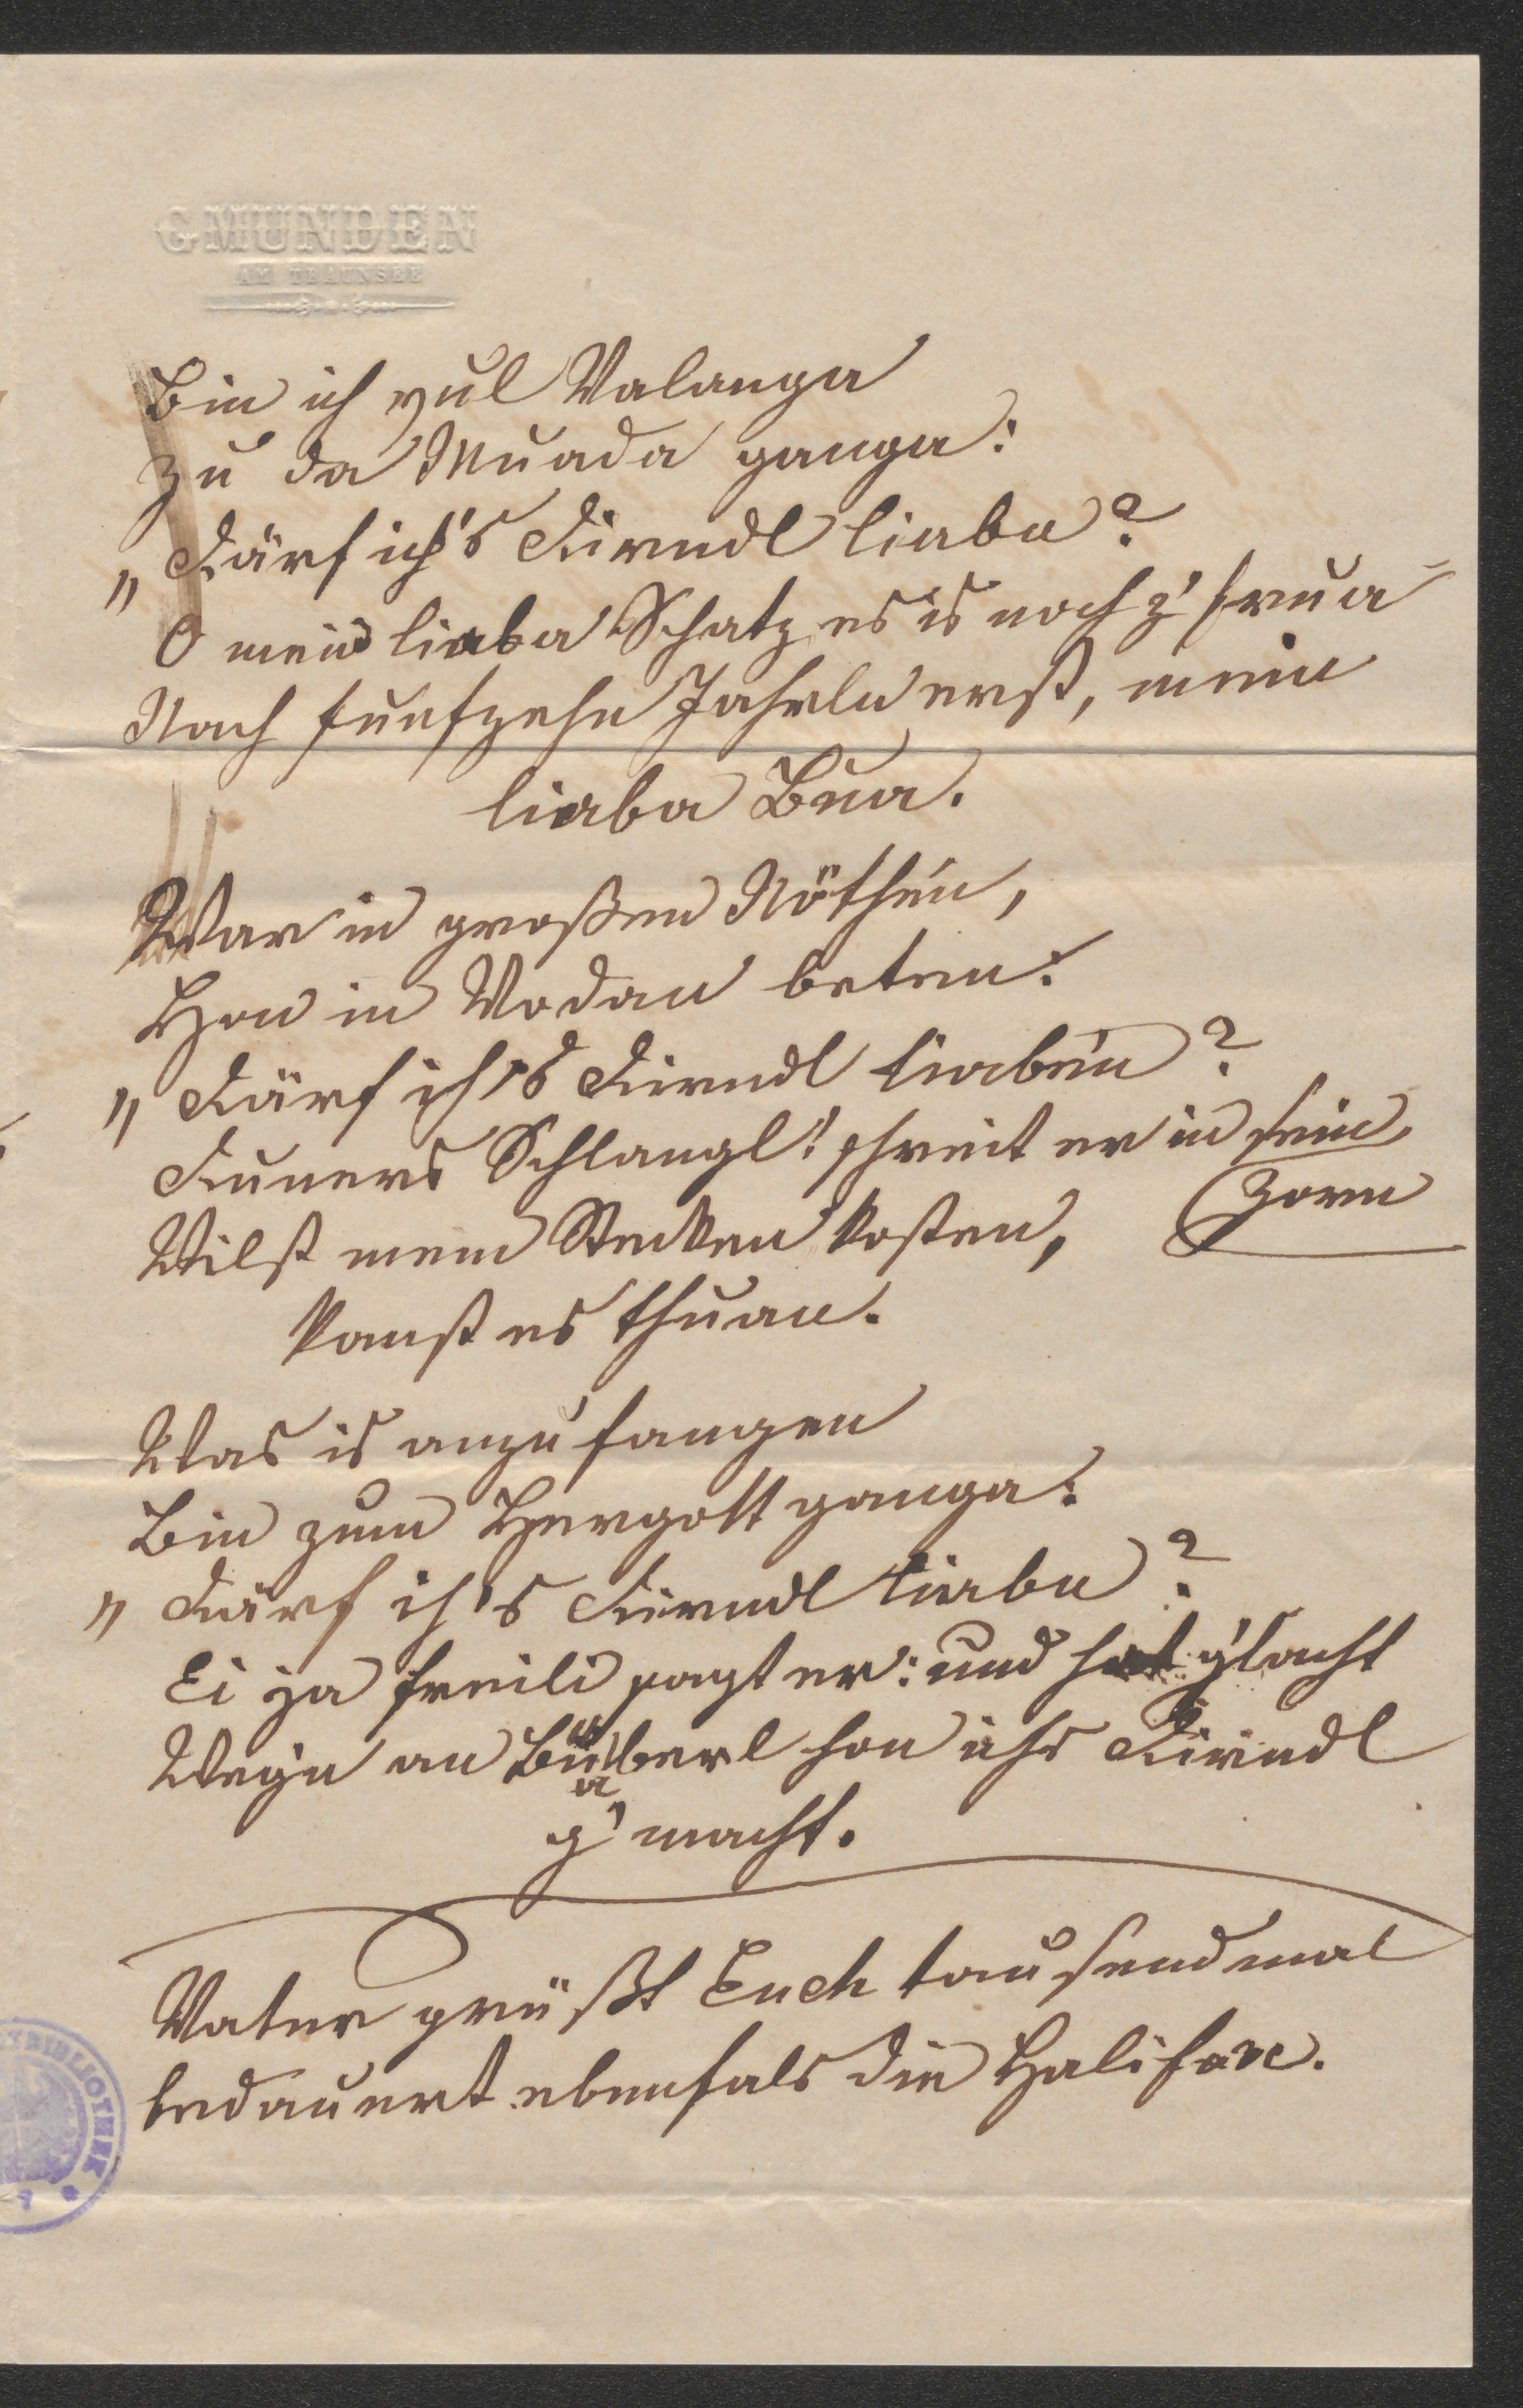 GMUNDEN
AM TRAUNSEE
Bin ich vul Valanga
zu da Muada ganga:
„Därf ich's Dirndl liaba?
O mein liaba Schatz es is noch z' frua
Nach funfzehn Jahrln erst, mein
liaba Bua.
War in großen Nöthen,
Hon in Vodan beten:
„Därf ich's Dirndl liaben?
Duners Schlangl! schreit er in sein
Zorn
Wilst mein Stecken kosten,
kanst es thuan.
Was is anzufangen
Bin zum Hergott ganga:
„Därf ich's Dirndl liaba?
Ei ja freili sagt er: und hat g'lacht
Wegn an Büaberl hon ichs Dirndl
g'macht.
Vater grüßt Euch tausendmal
bedauert ebenfals die
BIBLIOTHEK